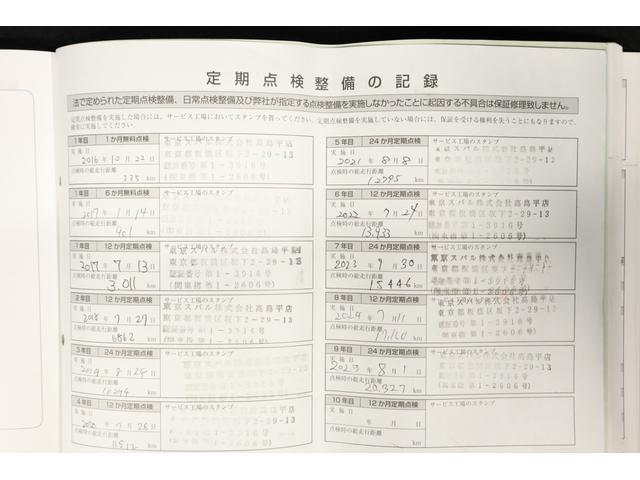 定期点検整備の記録
法で定められた定期点検整備、日常点検整備及び弊社が指定する点検整備を実施しなかったことに起因する不具合は保証修理致しません。
定期点検整備を実施した場合には、サービス工場においてスタンプを貰ってください。定期点検整備を実施していない場合には、保証を受ける権利を失うことにもなりますので、
確実に実施してください。
1年目 1か月無料点検 サービス工場のスタンプ
実施日
2016年10月22日
点検時の総走行距離
335 km
1年目 6か月無料点検 サービス工場のスタンプ
実施日
2017年1月14日
点検時の総走行距離
401 km
1年目 12か月定期点検 サービス工場のスタンプ
実施日
東京スバル株式会社高島平店
2017年7月13日
東京都板橋区坂下2-29-13
点検時の総走行距離
認証番号第1-3916号
3,011 km
(関東指第1-2606号)
2年目 12か月定期点検 サービス工場のスタンプ
実施日
東京スバル株式会社高島平店
2018年7月27日
東京都板橋区坂下2-29-13
点検時の総走行距離
認証番号第1-3916号
6862 km
(関東指第1-2606号)
3年目 24か月定期点検 サービス工場のスタンプ
実施日
2019年8月24日
点検時の総走行距離
km
4年目 12か月定期点検 サービス工場のスタンプ
実施日
2020年7月26日
点検時の総走行距離
km
5年目 24か月定期点検 サービス工場のスタンプ
実施日
2021年8月8日
点検時の総走行距離
12795 km
6年目 12か月定期点検 サービス工場のスタンプ
実施日
東京スバル株式会社高島平店
2022年7月24日
東京都板橋区坂下2-29-13
点検時の総走行距離
認証番号第1-3916号
13,933 km
(関東指第1-2606号)
7年目 24か月定期点検 サービス工場のスタンプ
実施日
東京スバル株式会社高島平店
2023年7月30日
点検時の総走行距離
15446 km
8年目 12か月定期点検 サービス工場のスタンプ
実施日
2024年7月11日
東京都板橋区坂下2-29-13
点検時の総走行距離
認証番号第1-3916号
km
(関東指第1-2606号)
9年目 24か月定期点検 サービス工場のスタンプ
実施日
年8月1日
点検時の総走行距離
20,327 km
10年目 12か月定期点検 サービス工場のスタンプ
実施日
年 月 日
点検時の総走行距離
km